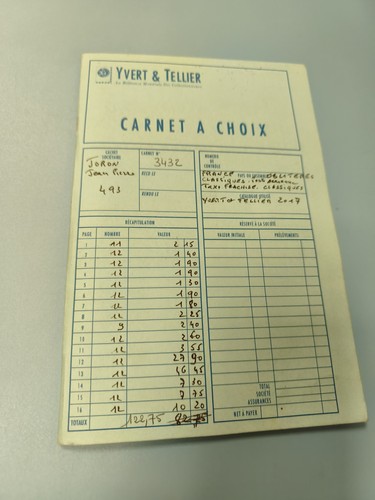 YVERT & TELLIER
La Référence Mondiale des Collectionneurs
CARNET A CHOIX
VALEURS
SOCIÉTAIRE
JORON
Jean Pierre
493
CARNET N°
3432
REÇU LE
RENDU LE
NUMÉRO
DE
CONTRÔLE
FRANCE OBLITERES
CLASSIQUES
TAXE FRANCHISE CLASSIQUES
CATALOGUE UTILISÉ
YVERT & TELLIER 2017
RÉCAPITULATION
PAGE NOMBRE VALEUR
1 11 2 15
2 12 1 40
3 12 1 90
4 12 1 90
5 12 1 30
6 12 1 90
7 12 1 80
8 11 2 25
9 9 2 40
10 12 2 60
11 12 3 55
12 12 27 90
13 12 46 45
14 12 7 30
15 12 7 75
16 12 10 20
TOTAUX 122,75
RÉSERVÉ A LA SOCIÉTÉ
VALEUR INITIALE PRÉLÈVEMENTS
TOTAL
SOCIÉTÉ
ASSURANCES
NET A PAYER